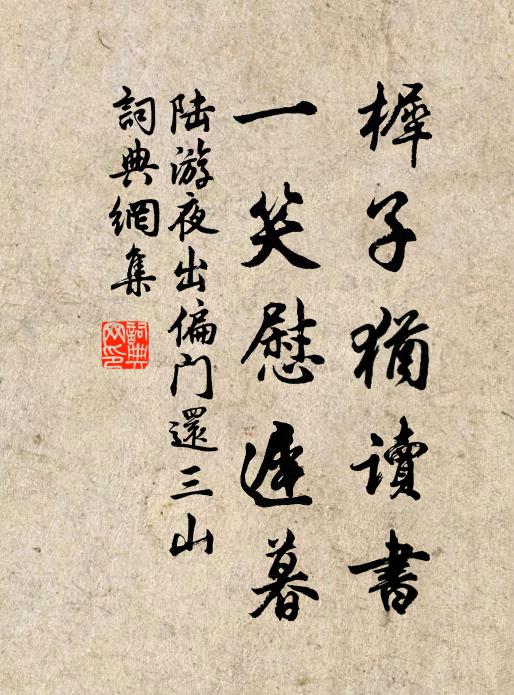 樨子猶讀書
一笑慰遲暮
陸游夜出偏门還三山
詞典網集
詞典网印